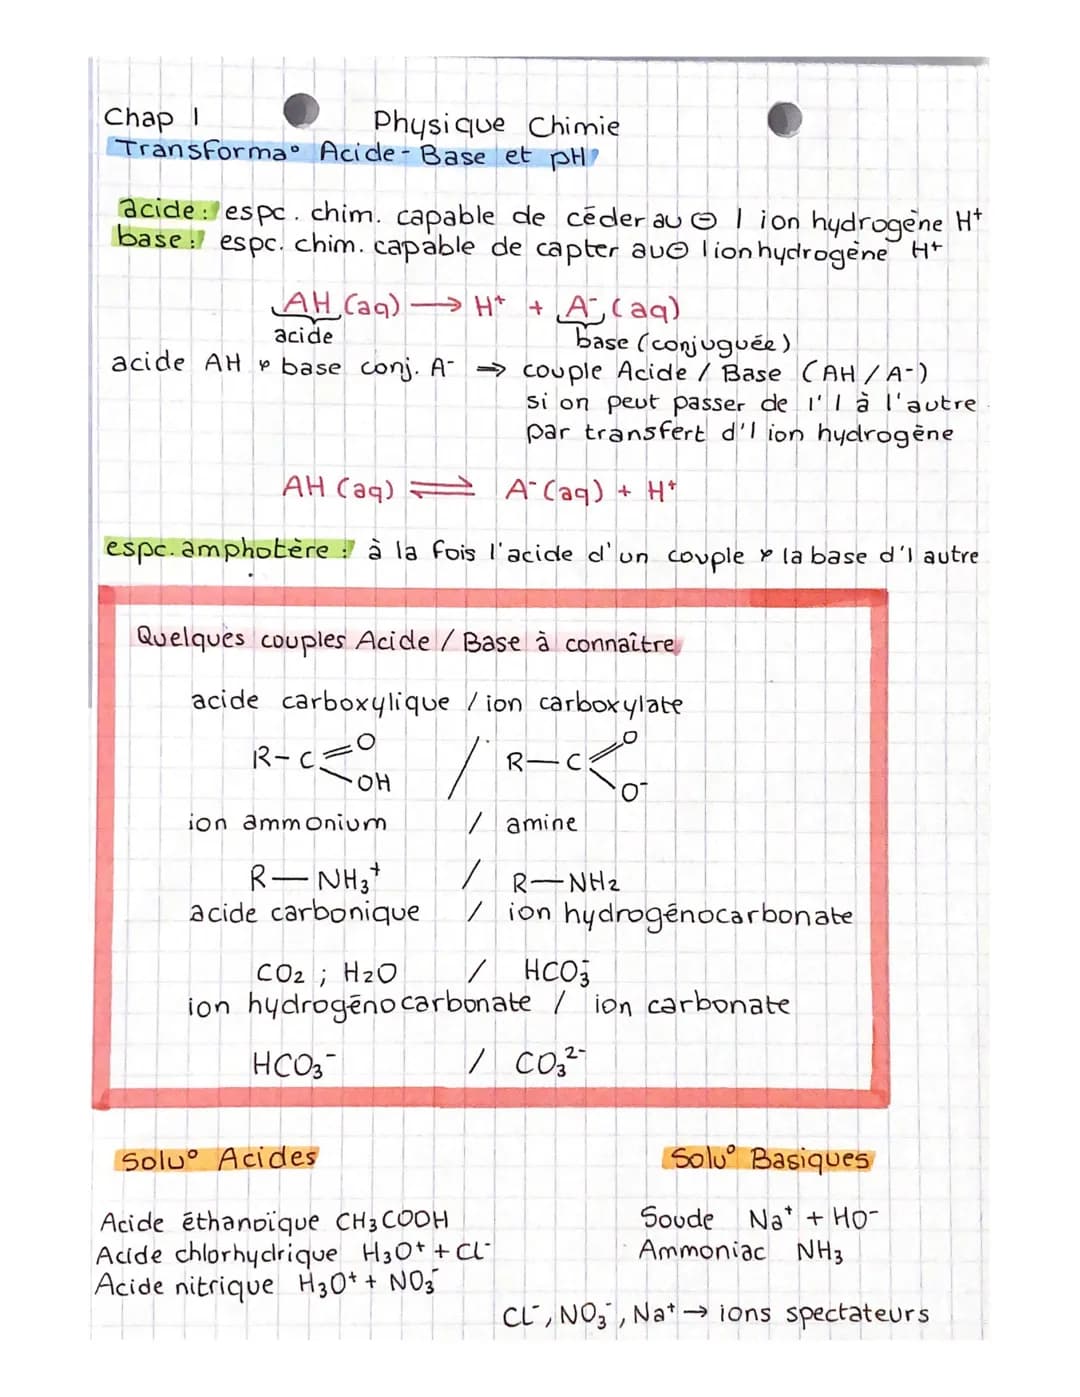 Chap 1 Physique Chimie
Transforma° Acide-Base et pH
acide : espc. chim. capable de céder au ⊖ 1 ion hydrogène H⁺
base : espc. chim. capable de capter au ⊖ 1 ion hydrogène H⁺
AH (aq) → H⁺ + A⁻ (aq)
acide base (conjuguée)
acide AH & base conj. A⁻ ⇒ couple Acide / Base (AH / A-)
si on peut passer de l'1 à l'autre
par transfert d'1 ion hydrogène
AH (aq) ⇌ A⁻ (aq) + H⁺
espc. amphotère : à la fois l'acide d'un couple & la base d'1 autre
Quelques couples Acide / Base à connaître
acide carboxylique / ion carboxylate
R-C=O OH / R-C=O O⁻
ion ammonium / amine
R-NH₃⁺ / R-NH₂
acide carbonique / ion hydrogénocarbonate
CO₂ ; H₂O / HCO₃⁻
ion hydrogénocarbonate / ion carbonate
HCO₃⁻ / CO₃²⁻
Solu° Acides Solu° Basiques
Acide éthanoïque CH₃COOH Soude Na⁺ + HO⁻
Acide chlorhydrique H₃O⁺ + Cl⁻ Ammoniac NH₃
Acide nitrique H₃O⁺ + NO₃⁻
Cl⁻, NO₃⁻, Na⁺ → ions spectateurs